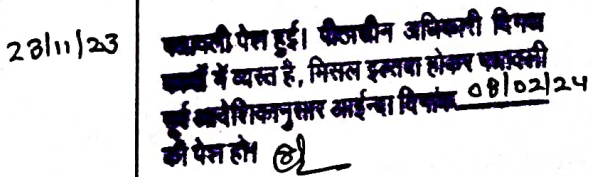 23/11/23
पत्रावली पेश हुई। पीठासीन अधिकारी दिगर
कार्यों में व्यस्त है, मिसल इल्तवा होकर पत्रावली
पूर्व आदेशिकानुसार आईन्दा दिनांक 08/02/24
को पेश हो।